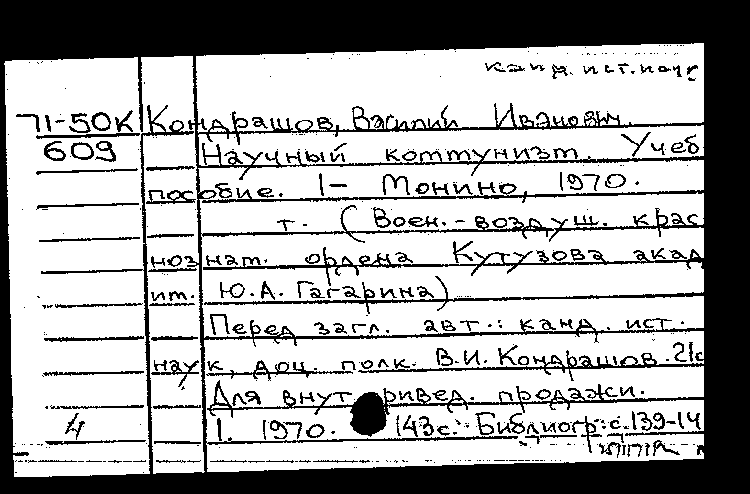 канд. ист. наук
71-50К Кондрашов, Василий Иванович.
609 Научный коммунизм. Учеб.
пособие. 1- Монино, 1970.
т. (Воен.-воздуш. крас
нознам. ордена Кутузова акад
им. Ю.А. Гагарина)
Перед загл. авт.: канд. ист.
наук, доц. полк. В.И. Кондрашов. 21с
Для внут ривед. продажи.
4 1. 1970. 143с. Библиогр: с.139-14